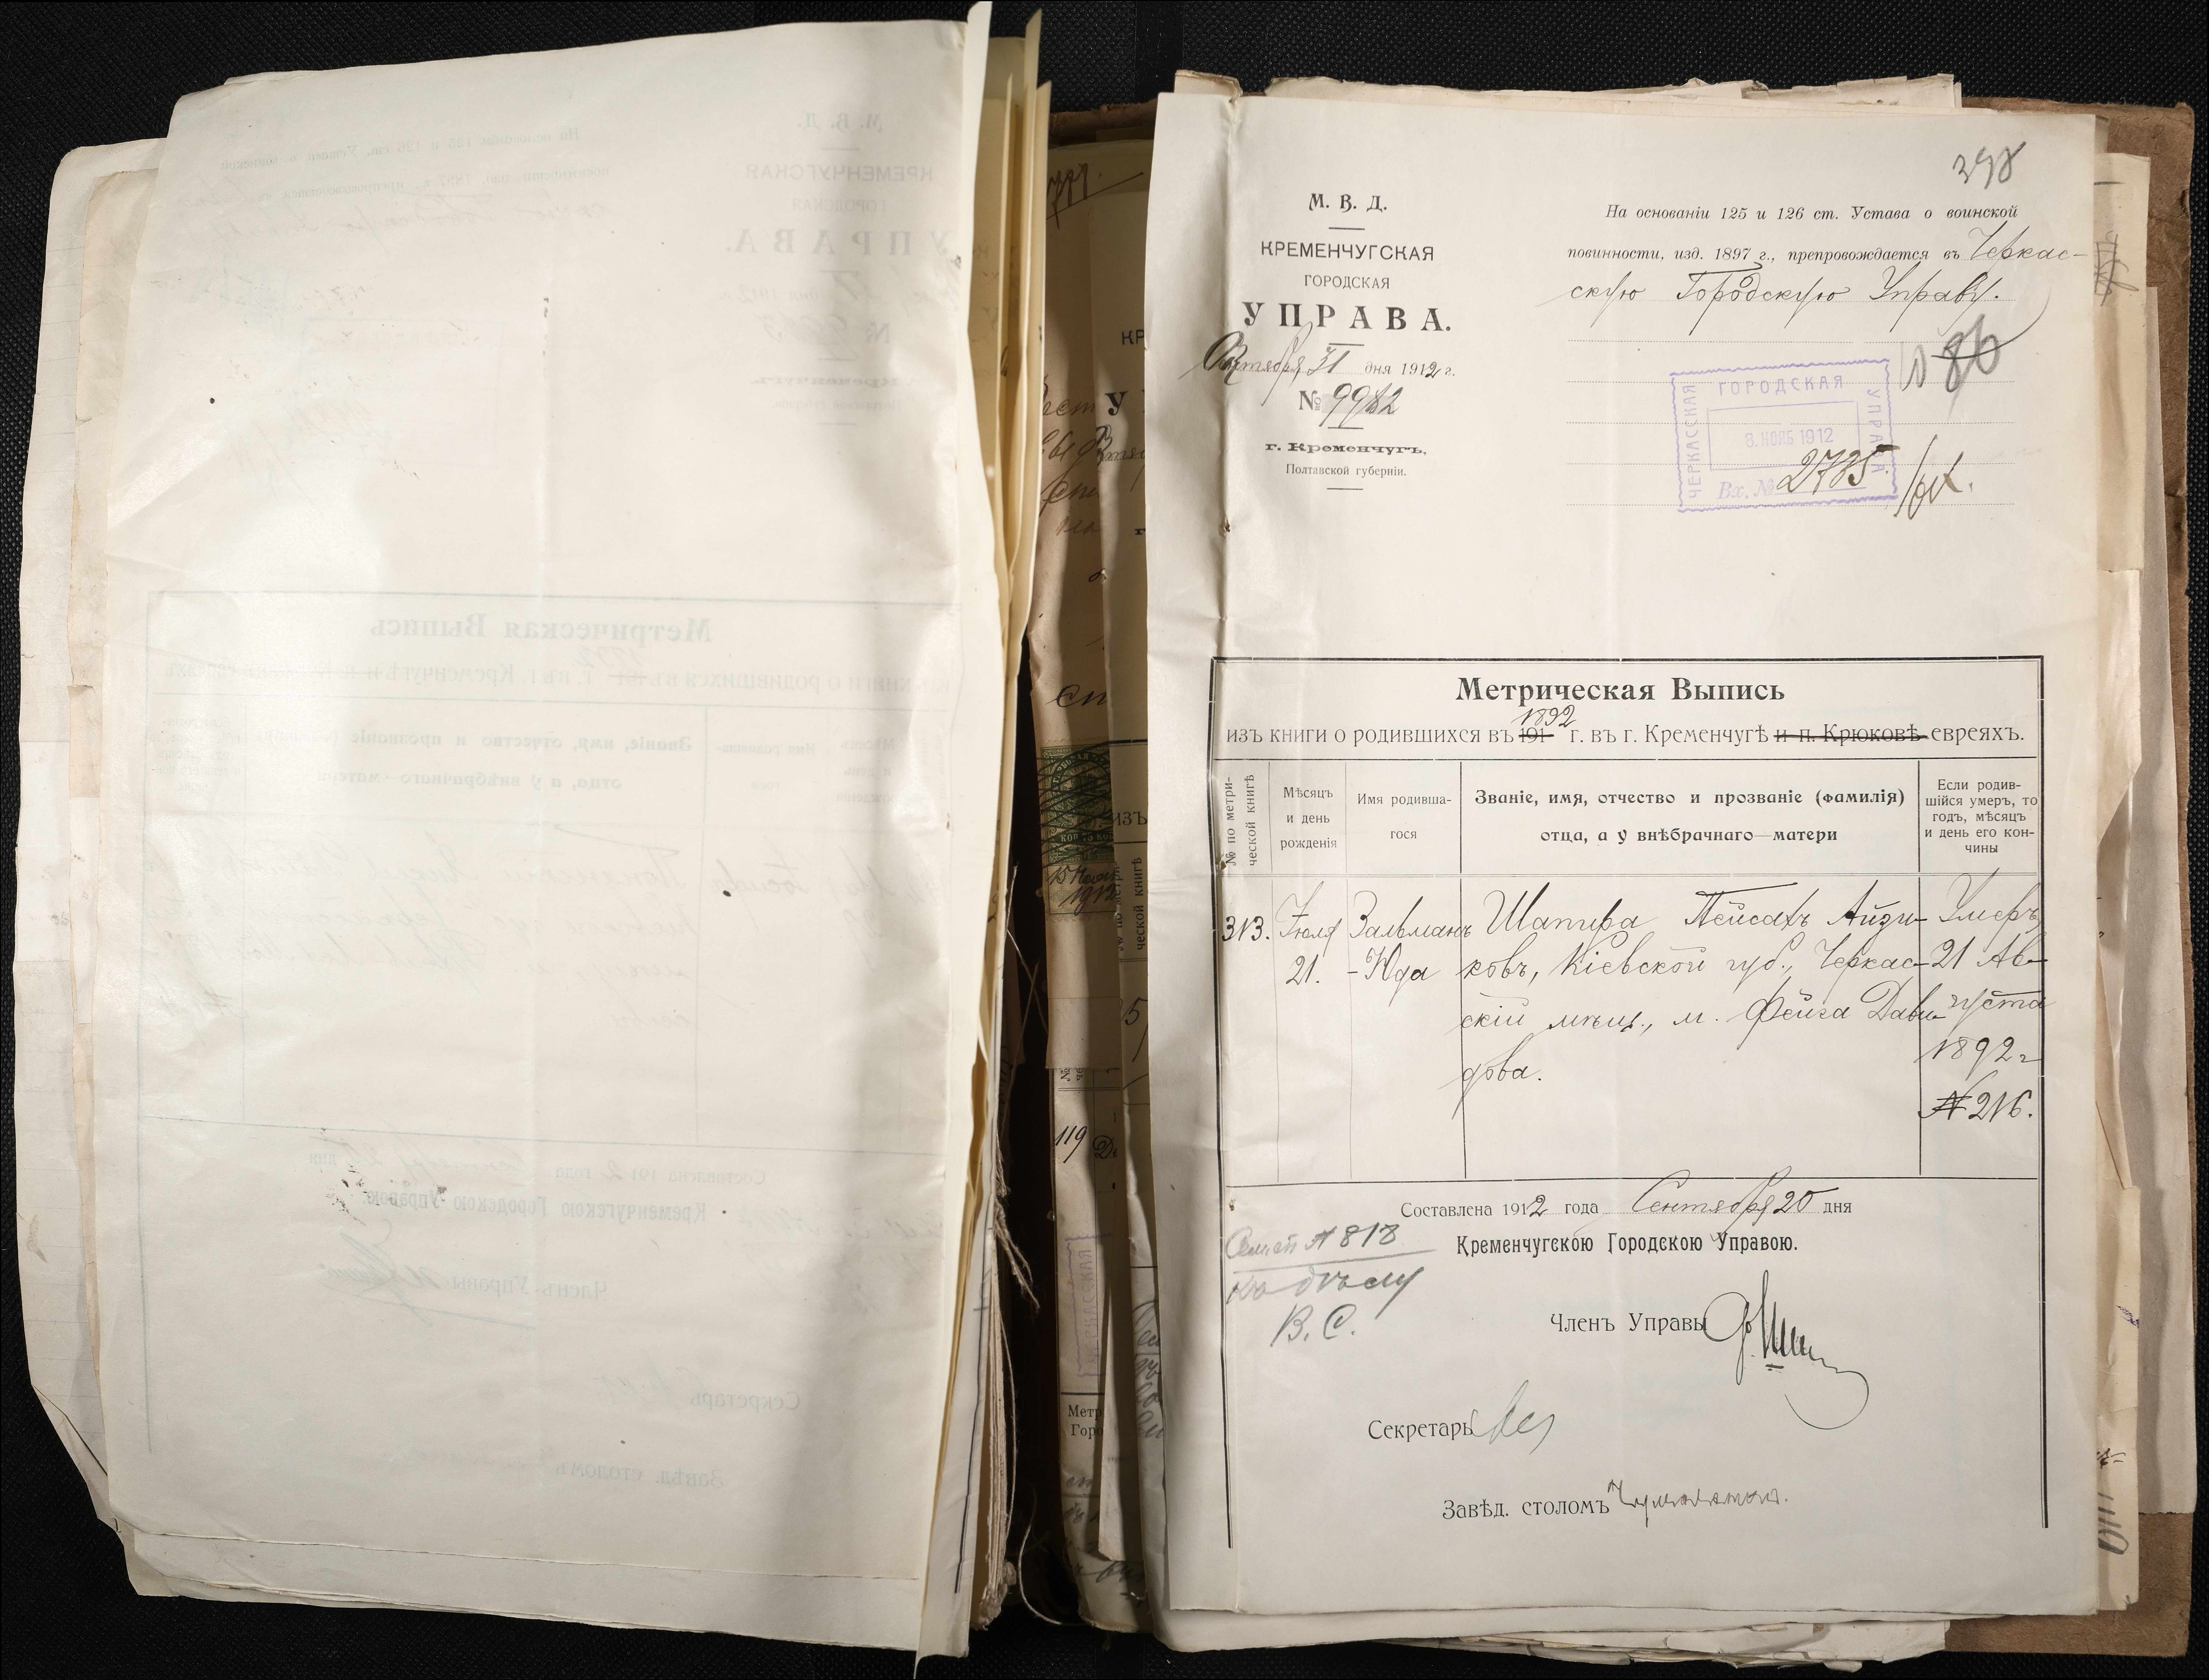 398
М. В. Д.
КРЕМЕНЧУГСКАЯ
ГОРОДСКАЯ
УПРАВА.
Октября 31 дня 1912 г.
№ 9982
г. Кременчугъ,
Полтавской губерніи.
На основаніи 125 и 126 ст. Устава о воинской
повинности, изд. 1897 г., препровождается въ Черкас-
скую Городскую Управу.
86
ЧЕРКАССКАЯ ГОРОДСКАЯ УПРАВА
8. НОЯБ 1912
Вх. № 2785
Метрическая Выпись
1892
изъ книги о родившихся въ 191 г. въ г. Кременчугѣ и п. Крюковѣ евреяхъ.
№ по метри-
ческой книгѣ
Мѣсяцъ
и день
рожденія
Имя родивша-
гося
Званіе, имя, отчество и прозваніе (фамилія)
отца, а у внѣбрачнаго—матери
Если родив-
шійся умеръ, то
годъ, мѣсяцъ
и день его кон-
чины
313. Іюля Зальманъ Шапира Пейсахъ Айзи- Умеръ
21. -Юда ковъ, Кіевской губ., Черкас- 21 Ав-
скій мѣщ., м. Фейга Дави- густа
дова. 1892 г
№ 216.
Составлена 1912 года Сентября 20 дня
Кременчугскою Городскою Управою.
№ 818
къ дѣлу
В. С.
Членъ Управы
Секретарь
Завѣд. столомъ